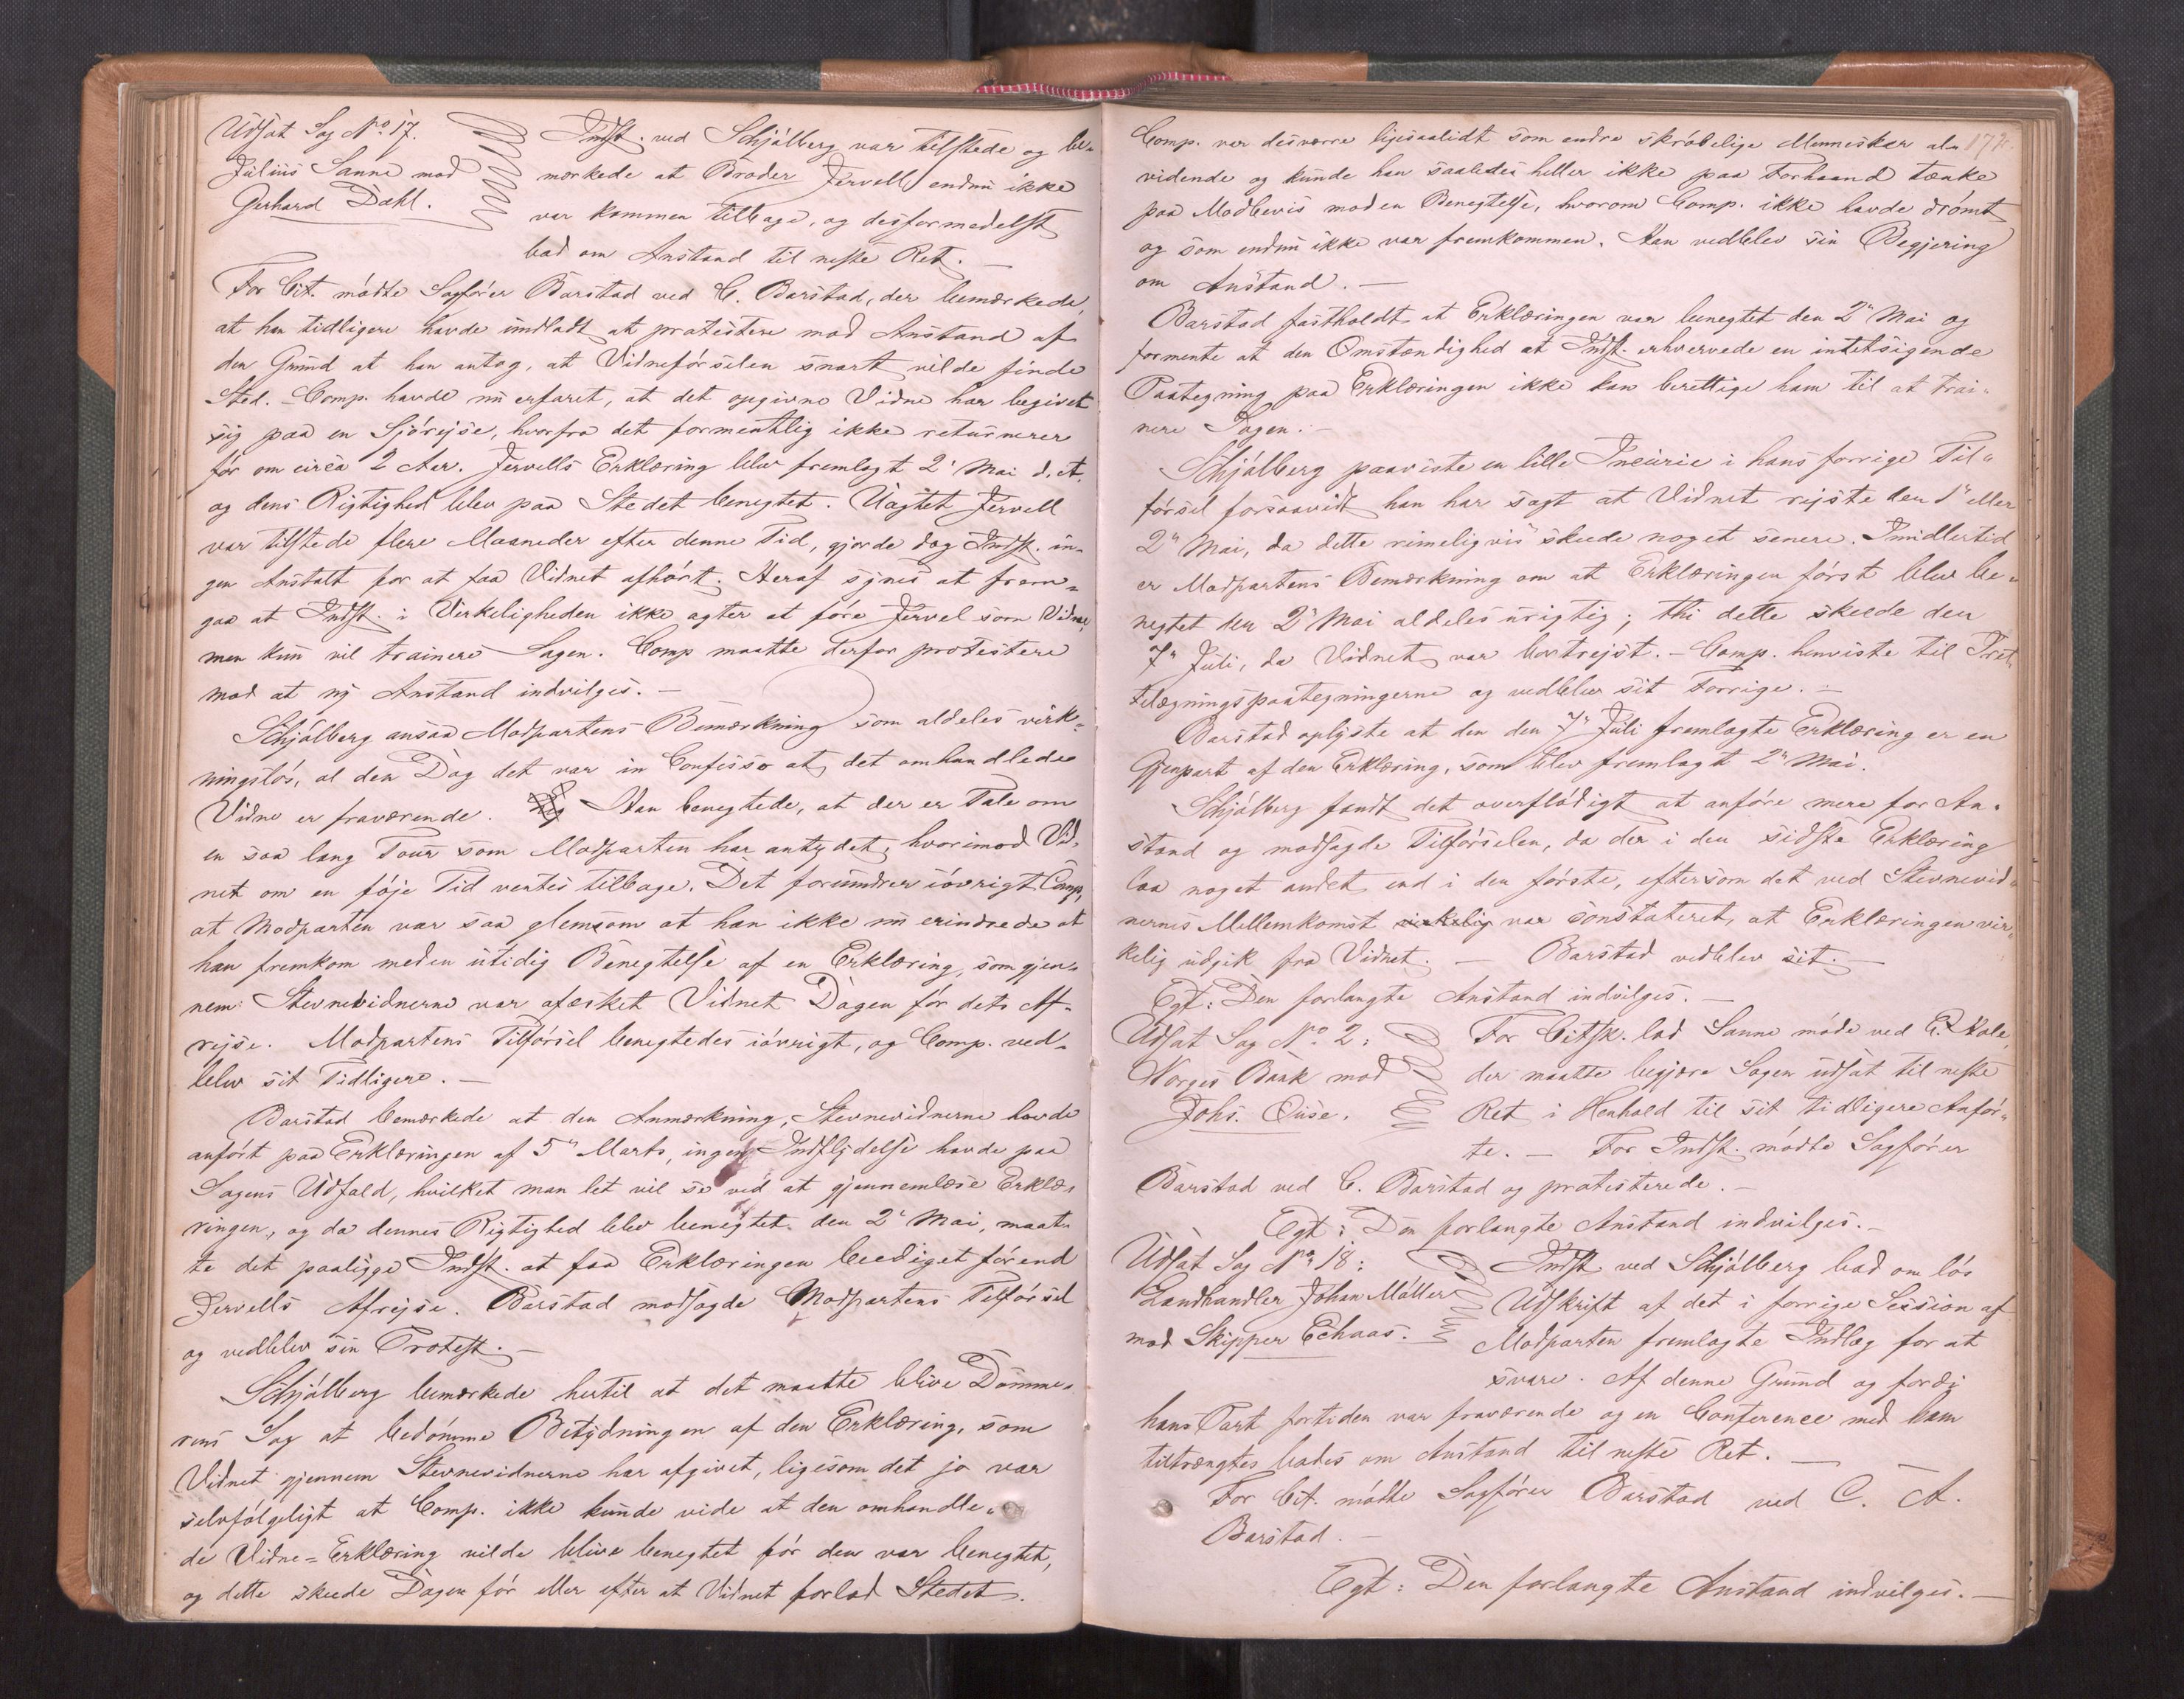 Udsat Sag No 17.
Julius Sanne mod
Gerhard Dahl.
Indst. ved Schjölberg var tilstede og be-
mærkede at Broder Jervell endnu ikke
var kommen tilbage, og desformedelst
bad om Anstand til neste Ret. —
For Cit. mödte Sagförer Barstad ved C. Barstad, der bemærkede,
at han tidligere havde undladt at protestere mod Anstand af
den Grund at han antog, at Vidneförselen snart vilde finde
Sted. Comp. havde nu erfaret, at det opgivne Vidne har begivet
sig paa en Sjöreise, hvorfra det formentlig ikke returnerer
för om circa 2 Aar. Jervells Erklæring blev fremlagt 2' Mai d. A.
og dens Rigtighed blev paa Stedet benegtet. Uagtet Jervell
var tilstede flere Maaneder efter denne Tid, gjorde dog Indst. in-
gen Anstalt for at faa Vidnet afhört. Heraf synes at frem-
gaa at Indst. i Virkeligheden ikke agter at före Jervel som Vidne,
men kun vil trainere Sagen. Comp maatte derfor protestere
mod at ny Anstand indvilges. —
Schjölberg ansaa Modpartens Bemærkning som aldeles virk-
ningslös, al den Dag det var in Confesso at det omhandlede
Vidne er fraværende. Han benegtede, at der er Tale om
en saa lang Tour som Modparten har antydet, hvorimod Vid-
net om en föje Tid ventes tilbage. Det forundrer iövrigt Comp,
at Modparten var saa glemsom at han ikke nu erindrede at
han fremkom med en utidig Benegtelse af en Erklæring, som gjen-
nem Stevnevidnerne var afæsket Vidnet Dagen för dets Af-
rejse. Modpartens Tilförsel benegtedes iövrigt, og Comp. ved-
blev sit Tidligere. —
Barstad bemærkede at den Anmærkning, Stevnevidnerne havde
anfört paa Erklæringen af 5" Marts, ingen Indflydelse havde paa
Sagens Udfald, hvilket man let vil se ved at gjennemlæse Erklæ-
ringen, og da dennes Rigtighed blev benegtet den 2' Mai, maat-
te det paaligge Indst. at faa Erklæringen beediget förend
Jervells Afrejse. Barstad modsagde Modpartens Tilförsel
og vedblev sin Protest. —
Schjölberg bemærkede hertil at det maatte blive Domme-
rens Sag at bedömme Betydningen af den Erklæring, som
Vidnet gjennem Stevnevidnerne har afgivet, ligesom det jo var
selvfölgeligt at Comp. ikke kunde vide at den omhandle-
de Vidne-Erklæring vilde blive benegtet för den var benegtet,
og dette skeede Dagen för eller efter at Vidnet forlod Stedet.
172.
Comp. var desværre ligesaalidt som andre skröbelige Mennesker al-
vidende og kunde han saaledes heller ikke paa Forhaand tænke
paa Modbevis mod en Benegtelse, hvorom Comp. ikke havde drömt
og som endnu ikke var fremkommen. Han vedblev sin Begjering
om Anstand. —
Barstad fastholdt at Erklæringen var benegtet den 2" Mai og
formente at den Omstændighed at Indst. erhvervede en intetsigende
Paategning paa Erklæringen ikke kan berettige ham til at trai-
nere Sagen. —
Schjölberg paaviste en lille Incurie i hans forrige Til-
försel forsaavidt han har sagt at Vidnet rejste den 1" eller
2" Mai, da dette rimeligvis skeede noget senere. Imidlertid
er Modpartens Bemærkning om at Erklæringen först blev be-
negtet den 2" Mai aldeles urigtig; thi dette skeede den
7" Juli, da Vidnet var bortrejst. — Comp. henviste til Fret-
telægningspaategningerne og vedblev sit Forrige. —
Barstad oplyste at den den 7" Juli fremlagte Erklæring er en
Gjenpart af den Erklæring, som blev fremlagt 2" Mai.
Schjölberg fandt det overflödigt at anföre mere for An-
stand og modsagde Tilförselen, da der i den sidste Erklæring
laa noget andet end i den förste, eftersom det ved Stevnevid-
nernes Mellemkomst virkelig var constateret, at Erklæringen vir-
kelig udgik fra Vidnet. — Barstad vedblev sit. —
Egt: Den forlangte Anstand indvilges. —
Udsat Sag No 2:
Norges Bank mod
Johs. Ouse.
For Citsk. lod Sanne möde ved
der maatte begjære Sagen udsat til neste
Ret i Henhold til sit tidligere Anför-
te. — For Indst. mödte Sagförer
Barstad ved C. Barstad og protesterede. —
Egt: Den forlangte Anstand indvilges. —
Udsat Sag No 18:
Landhandler Johan Möller
mod Skipper Echaas.
Indst. ved Schjölberg bad om lös
Udskrift af det i forrige Session af
Modparten fremlagte Indlæg for at
svare. Af denne Grund og fordi
hans Part fortiden var fraværende og en Conference med ham
tiltrængtes bades om Anstand til neste Ret. —
For Cit. mödte Sagförer Barstad ved C. A.
Barstad. —
Egt: Den forlangte Anstand indvilges. —